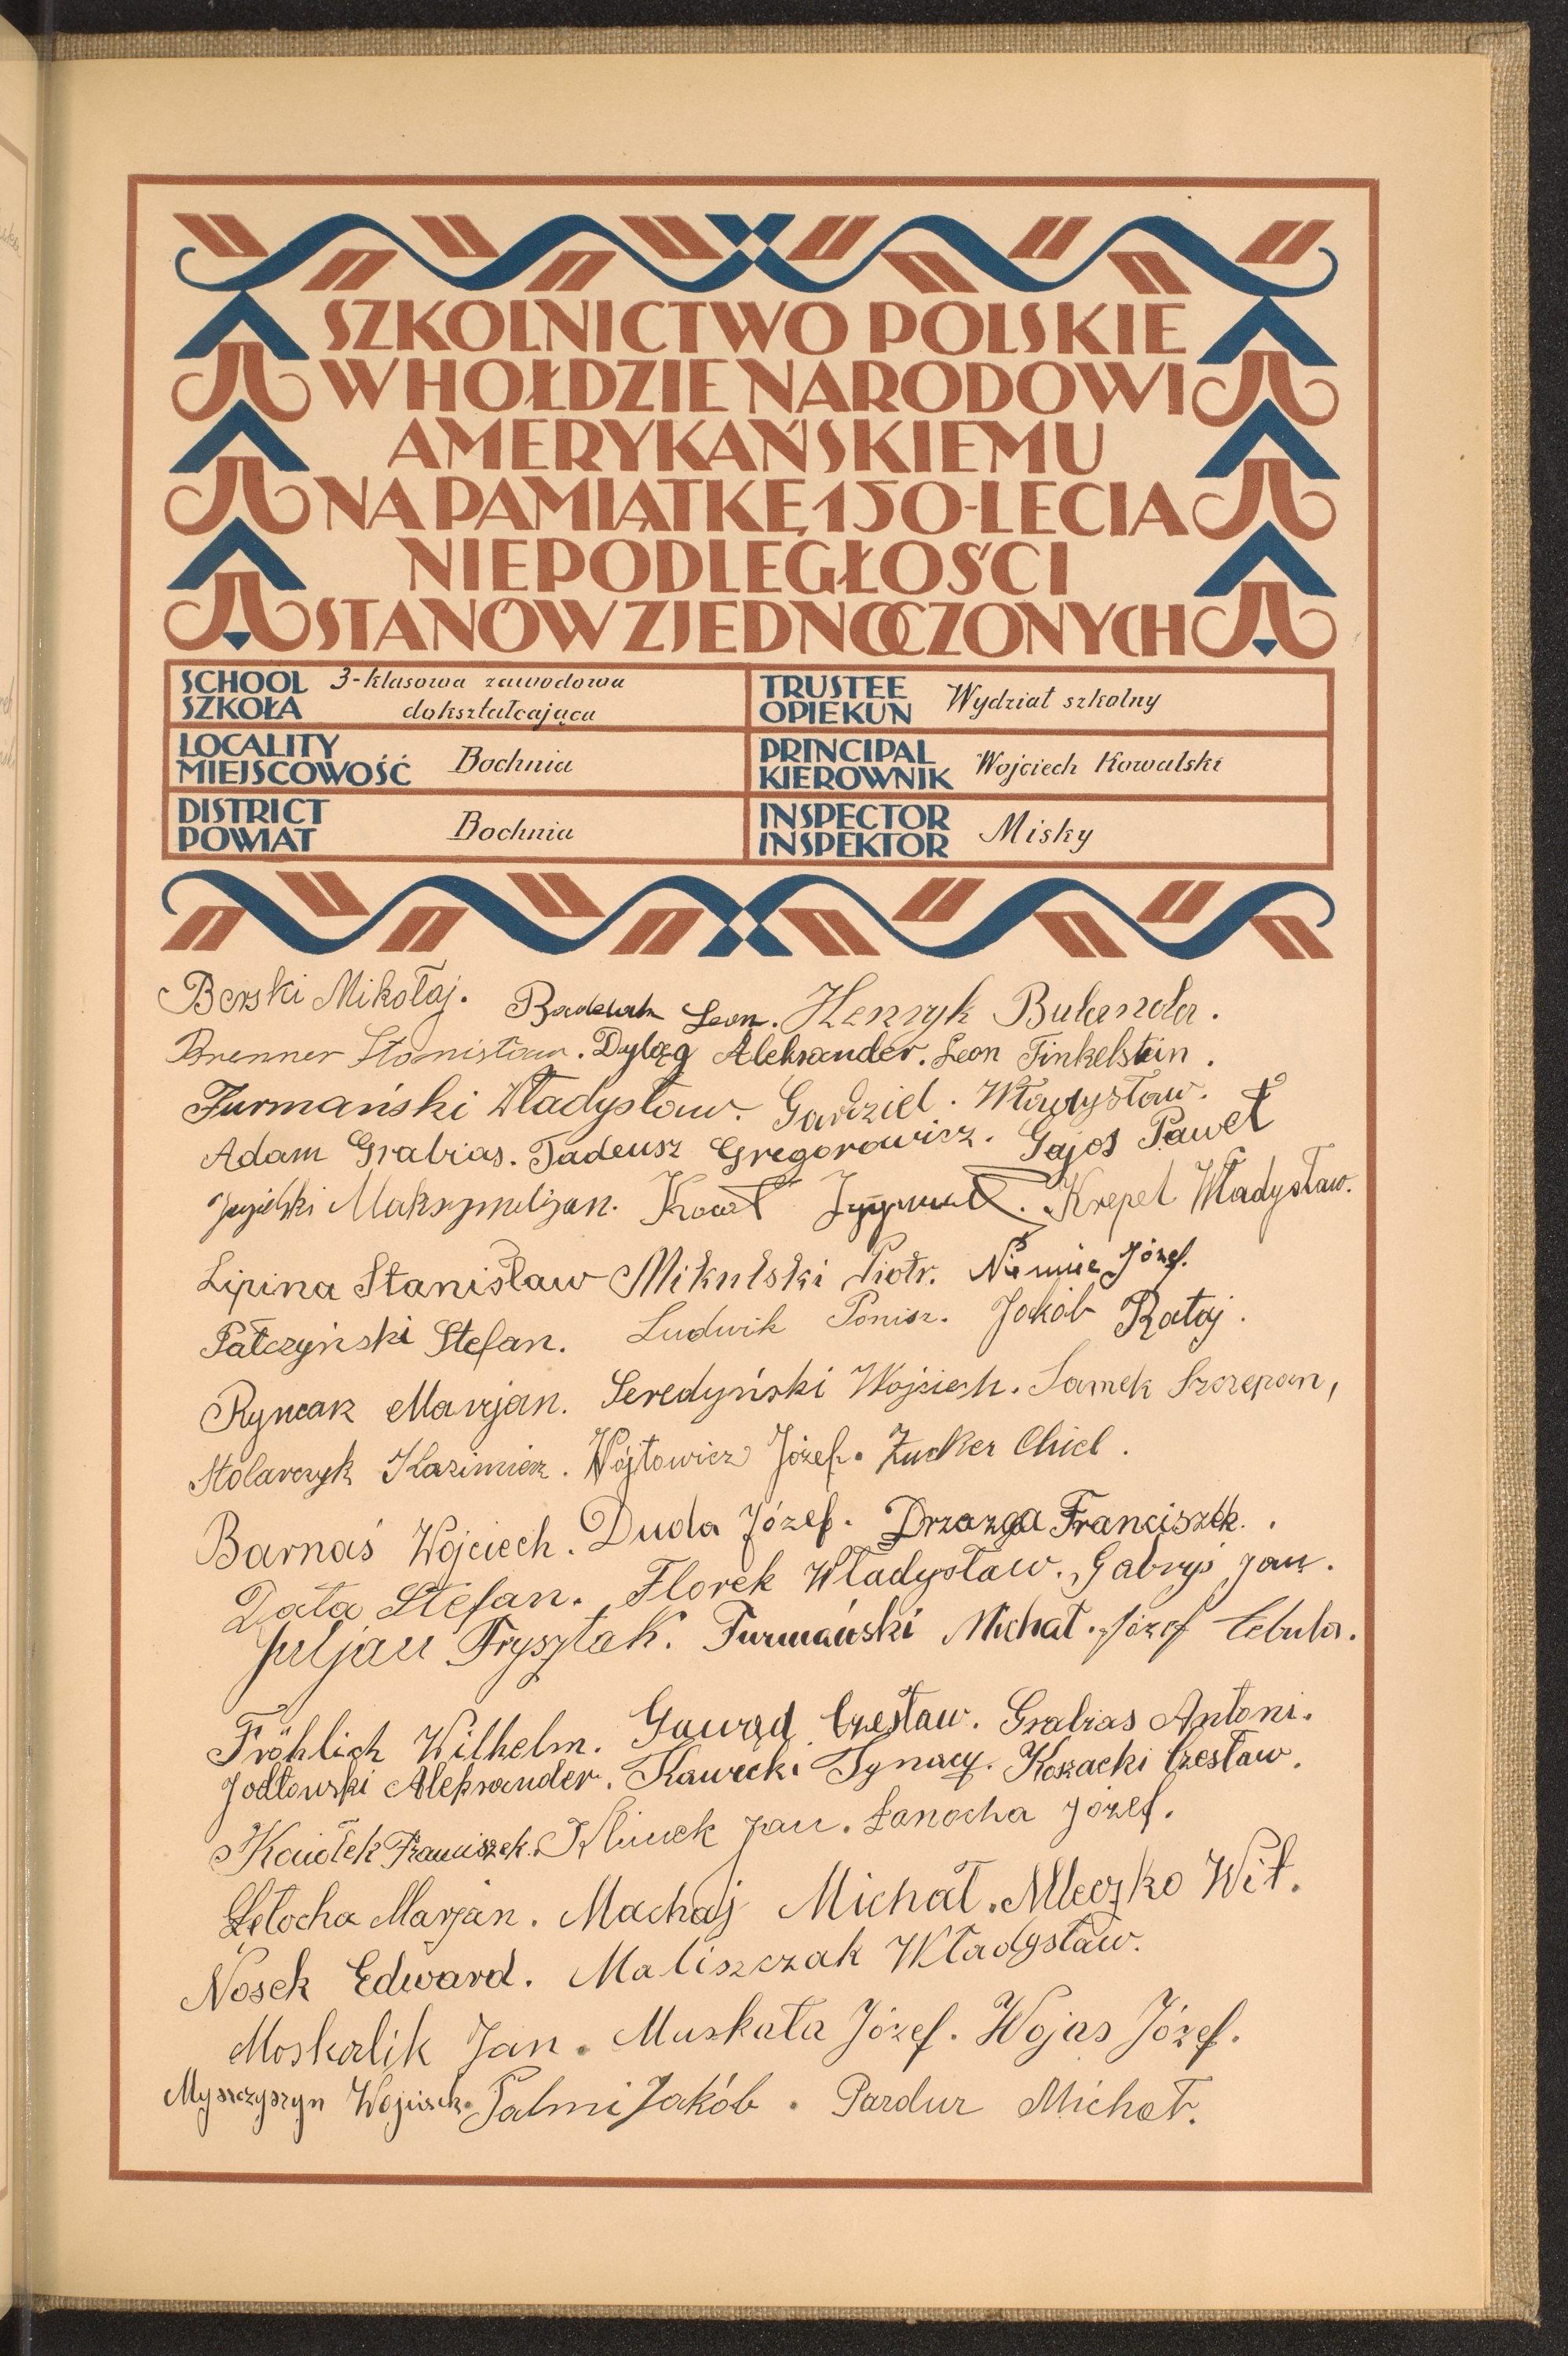 SZKOLNICTWO POLSKIE
W HOŁDZIE NARODOWI
AMERYKAŃSKIEMU
NA PAMIĄTKĘ 150-LECIA
NIEPODLEGŁOŚCI
STANÓW ZJEDNOCZONYCH
SCHOOL SZKOŁA 3-klasowa zawodowa dokształcająca
TRUSTEE OPIEKUN Wydział szkolny
LOCALITY MIEJSCOWOŚĆ Bochnia
PRINCIPAL KIEROWNIK Wojciech Kowalski
DISTRICT POWIAT Bochnia
INSPECTOR INSPEKTOR Misky
Berski Mikołaj. Leon. Henryk Bulanda.
Brenner Stanisław. Dyląg Aleksander. Leon Finkelstein.
Furmański Władysław. Gardziel. Władysław.
Adam Grabias. Tadeusz Gregorowicz. Gajos Paweł
Maksymiljan. Zygmunt. Krepel Władysław.
Lipina Stanisław Mikulski Piotr. Niemiec Józef.
Pałczyński Stefan. Ludwik Ponisz. Jakób Rataj.
Ryncarz Marjan. Seredyński Wojciech. Samek Szczepan,
Stolarczyk Kazimierz. Wójtowicz Józef. Zucker Chiel.
Barnaś Wojciech. Duda Józef. Drzazga Franciszek.
Data Stefan. Florek Władysław. Gabryś Jan.
Juljan Frysztak. Furmański Michał. Józef Cebula.
Fröhlich Wilhelm. Gawęd Czesław. Grabias Antoni.
Jodłowski Aleksander. Kawecki Ignacy. Kozacki Czesław.
Franciszek. Klimek Jan. Łanocha Józef.
Łętocha Marjan. Machaj Michał. Mleczko Wit.
Nosek Edward. Maliszczak Władysław.
Moskalik Jan. Muskała Józef. Wojas Józef.
Myszczyszyn Wojciech. Palmi Jakób. Pardur Michał.